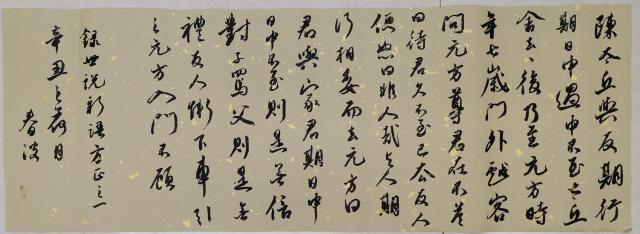 陳太丘與友期行
期日中過中不至太丘
舍去々後乃至元方時
年七歲門外戲客
問元方尊君在不答
曰待君久不至已去友人
便怒曰非人哉與人期
行相委而去元方曰
君與家君期日中
日中不至則是無信
對子罵父則是無
禮友人慚下車引
之元方入門不顧
錄世說新語方正之一
辛丑之荷月
春波